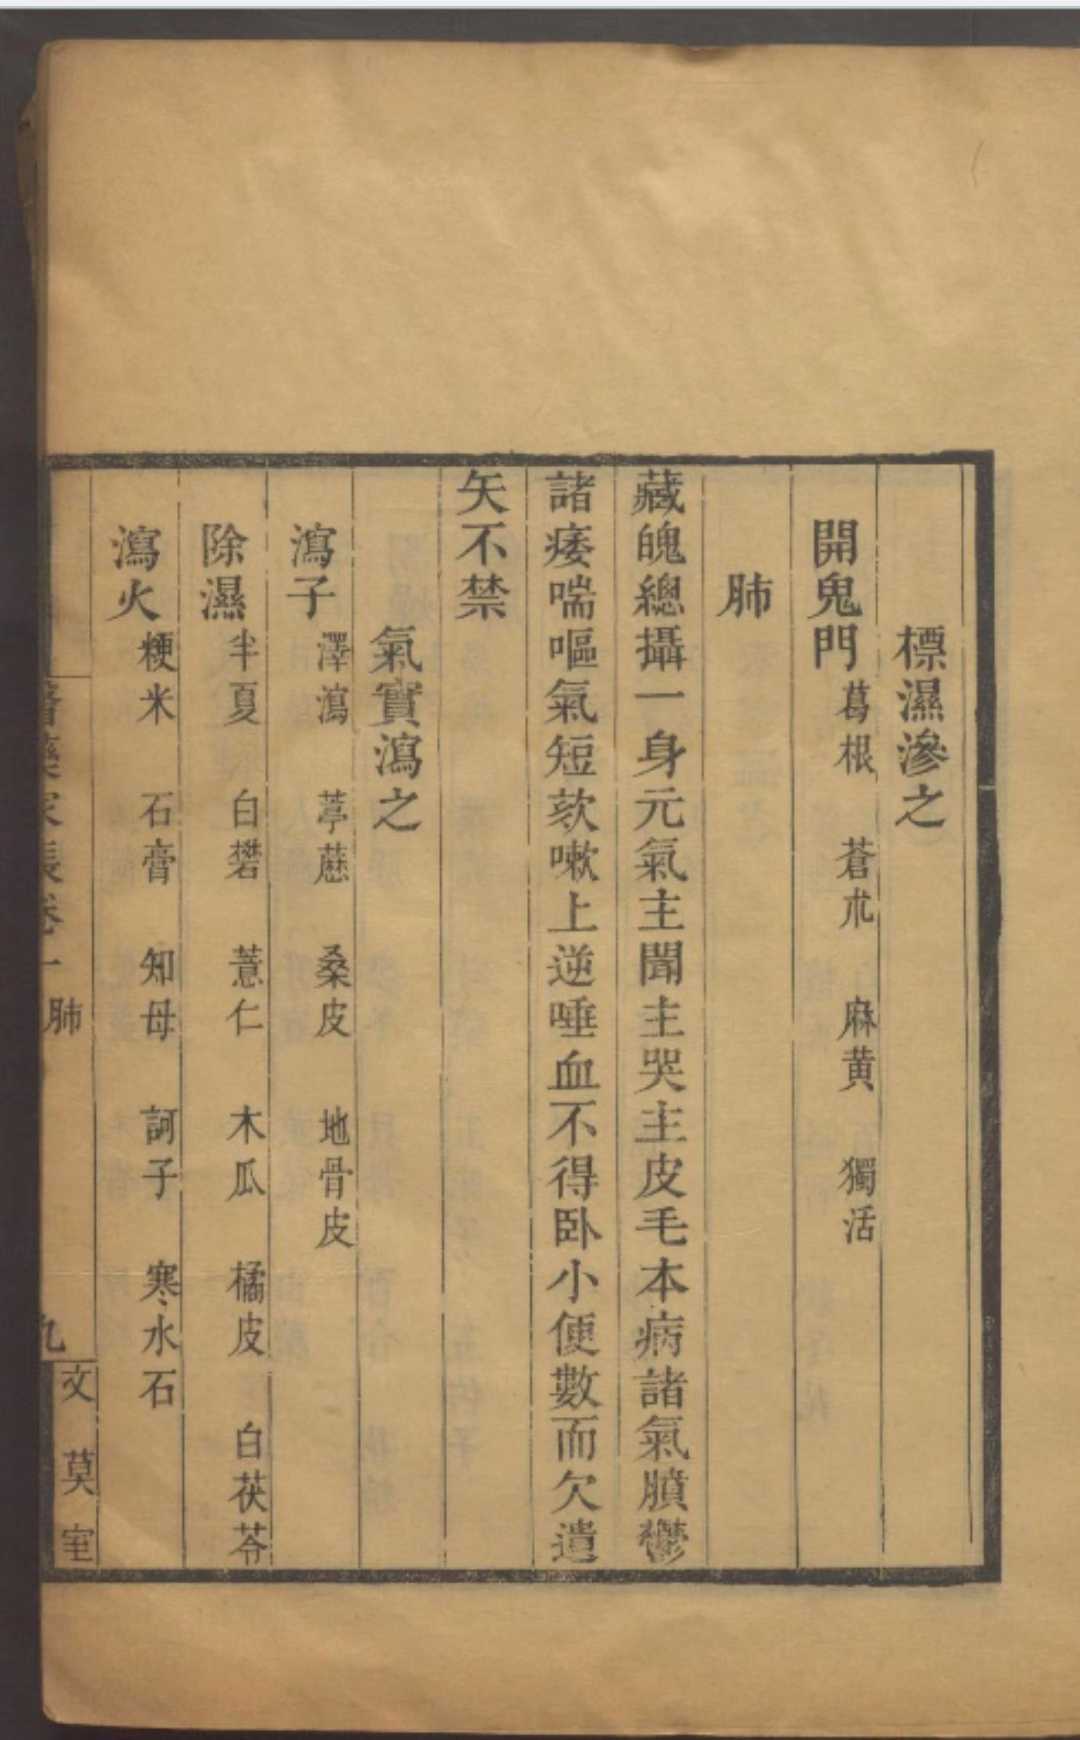 標濕滲之
開鬼門 葛根 蒼朮 麻黄 獨活
肺
藏魄總攝一身元氣主聞主哭主皮毛本病諸氣膹鬱
諸痿喘嘔氣短欬嗽上逆唾血不得卧小便數而欠遺
矢不禁
氣實瀉之
瀉子 澤瀉 葶藶 桑皮 地骨皮
除濕 半夏 白礬 薏仁 木瓜 橘皮 白茯苓
瀉火 粳米 石膏 知母 訶子 寒水石
卷一 肺 九
文莫室